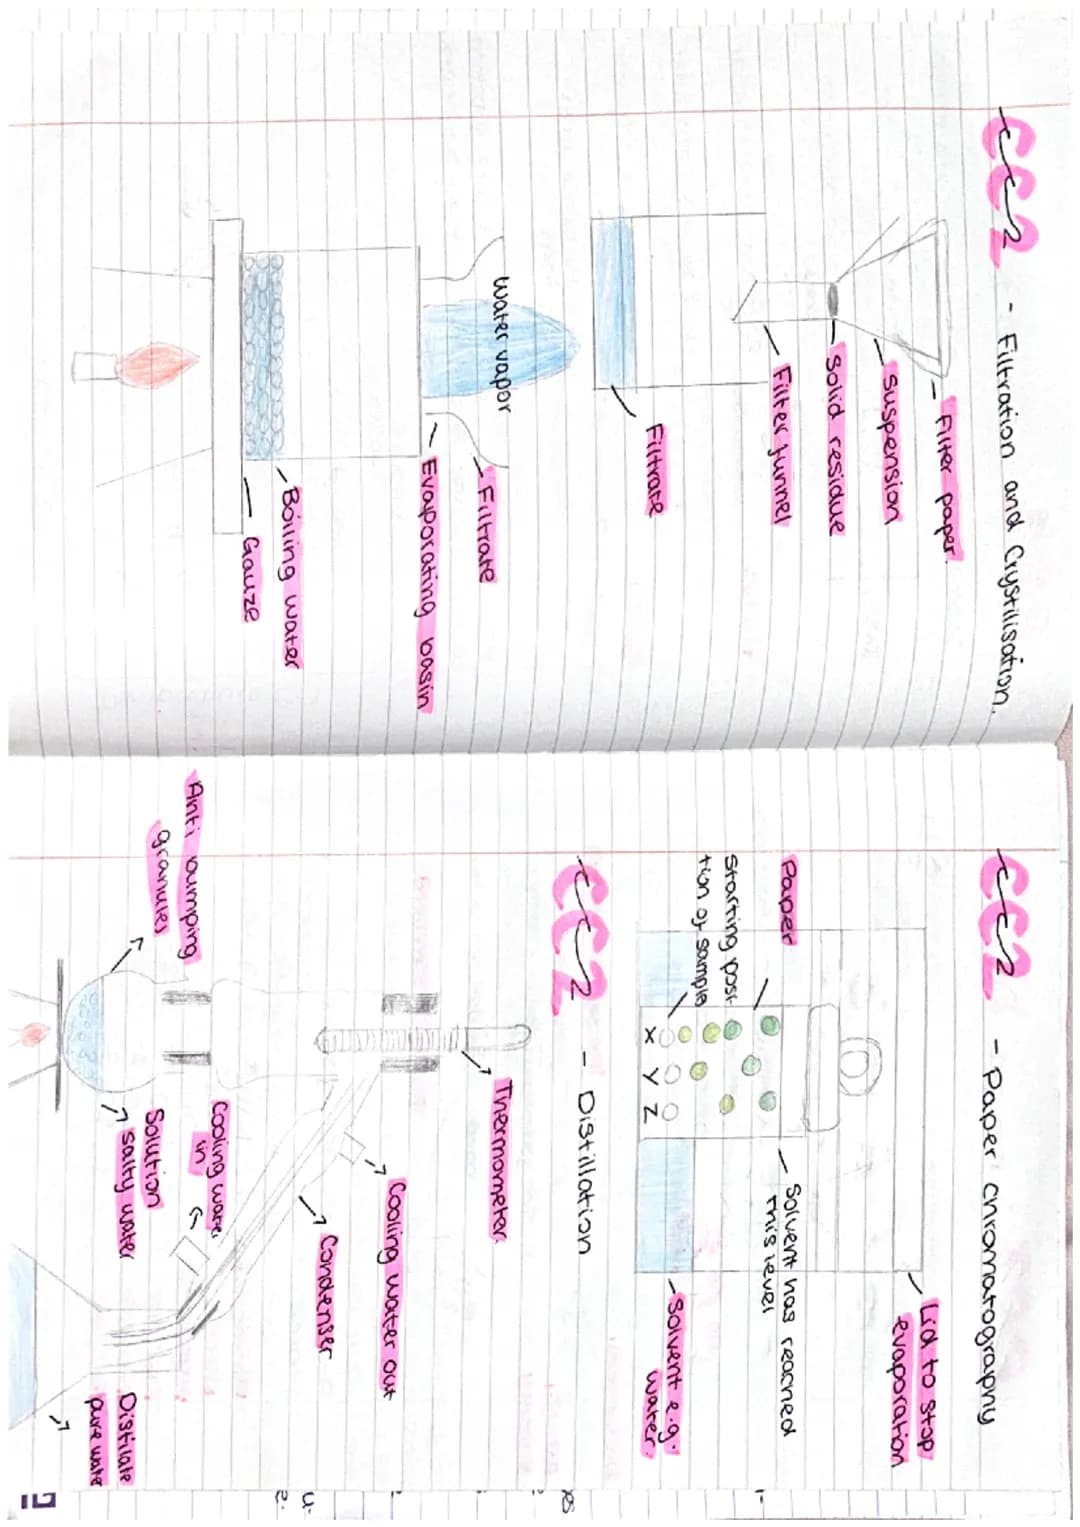 CC2 - Filtration and Crystilisation.
Filter paper
Suspension
Solid residue
Filter funnel
Filtrate
water vapor
Filtrate
Evaporating basin
Boiling water
Gauze
CC2 - Paper chromatography
Lid to stop
evaporation
Paper
Starting posi-
tion of sample
Solvent has reached
this level
X Y Z
Solvent e.g.
water.
CC2 - Distillation
Thermometer.
Cooling water out
Condenser
Cooling water
in
Solution
salty water
Anti bumping
granules
Distilate
pure water